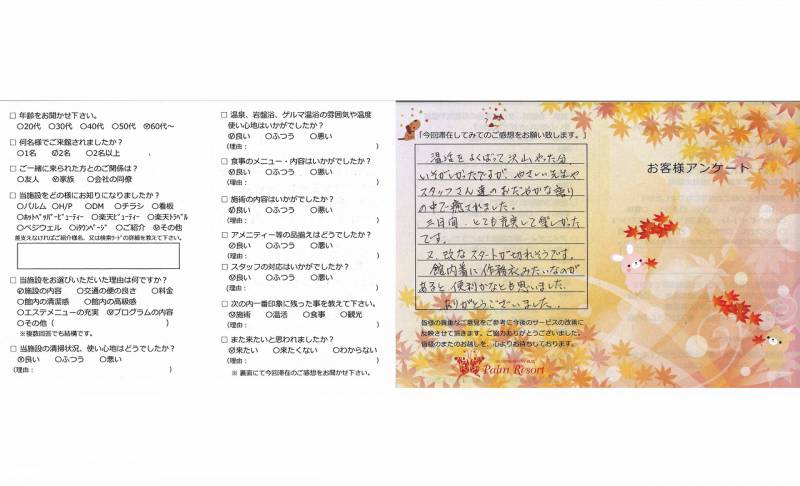 □ 年齢をお聞かせ下さい。
○20代 ○30代 ○40代 ○50代 ○60代～
□ 何名様でご来館されましたか？
○1名 ○2名 ○2名以上
□ ご一緒に来られた方とのご関係は？
○友人 ○家族 ○会社の同僚
□ 当施設をどの様にお知りになりましたか？
○パルム ○H/P ○DM ○チラシ ○看板
○ホットペッパービューティー ○楽天ビューティー ○楽天トラベル
○ベジウェル ○iタウンページ ○ご紹介 ○その他
差支えなければご紹介様名、又は検索ワードの詳細を教えて下さい。
□ 当施設をお選びいただいた理由は何ですか？
○施設の内容 ○交通の便の良さ ○料金
○館内の清潔感 ○館内の高級感
○エステメニューの充実 ○プログラムの内容
○その他（ ）
※複数回答でも結構です。
□ 当施設の清掃状況、使い心地はどうでしたか？
○良い ○ふつう ○悪い
(理由： )
□ 温泉、岩盤浴、ゲルマ温浴の雰囲気や温度
使い心地はいかがでしたか？
○良い ○ふつう ○悪い
(理由： )
□ 食事のメニュー・内容はいかがでしたか？
○良い ○ふつう ○悪い
(理由： )
□ 施術の内容はいかがでしたか？
○良い ○ふつう ○悪い
(理由： )
□ アメニティー等の品揃えはどうでしたか？
○良い ○ふつう ○悪い
(理由： )
□ スタッフの対応はいかがでしたか？
○良い ○ふつう ○悪い
(理由： )
□ 次の内一番印象に残った事を教えて下さい。
○施術 ○温活 ○食事 ○観光
(理由： )
□ また来たいと思われましたか？
○来たい ○来たくない ○わからない
(理由： )
※ 裏面にて今回滞在のご感想をお聞かせ下さい。
「今回滞在してみてのご感想をお願い致します。」
温活をよくばって沢山やった分
いそがしかったですが、やさしい先生や
スタッフさん達のおだやかな語り
の中で癒されました。
三日間、とても充実して楽しかった
です。
又、改なスタートが切れそうです。
館内着に作務衣みたいなのが
あると便利かなとも思いました。
ありがとうございました。
皆様の貴重なご意見をご参考に今後のサービスの改善に
反映させて頂きます。ご協力ありがとうございました。
皆様のまたのお越しを、心よりお待ちしております。
Palm Resort
お客様アンケート